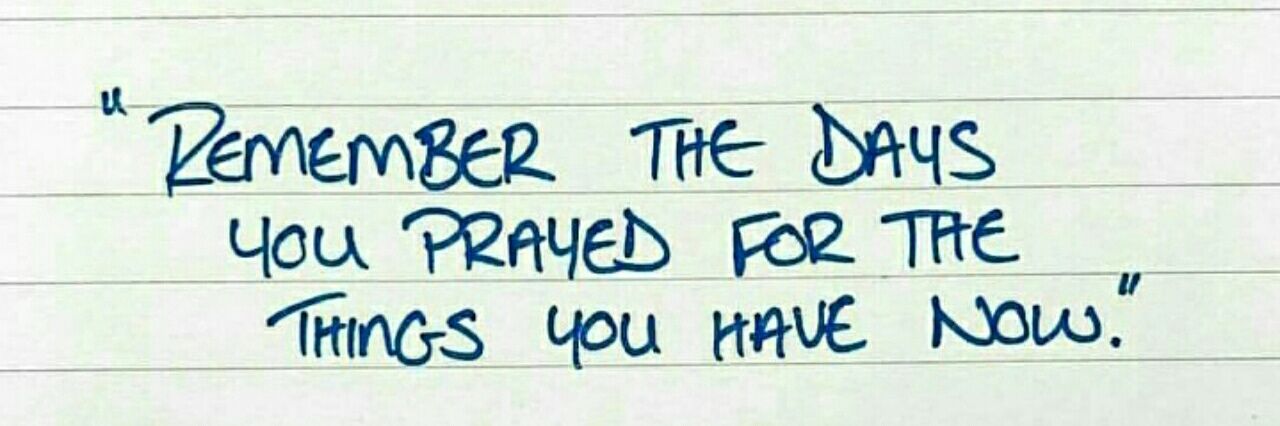 "REMEMBER THE DAYS
YOU PRAYED FOR THE
THINGS YOU HAVE NOW."